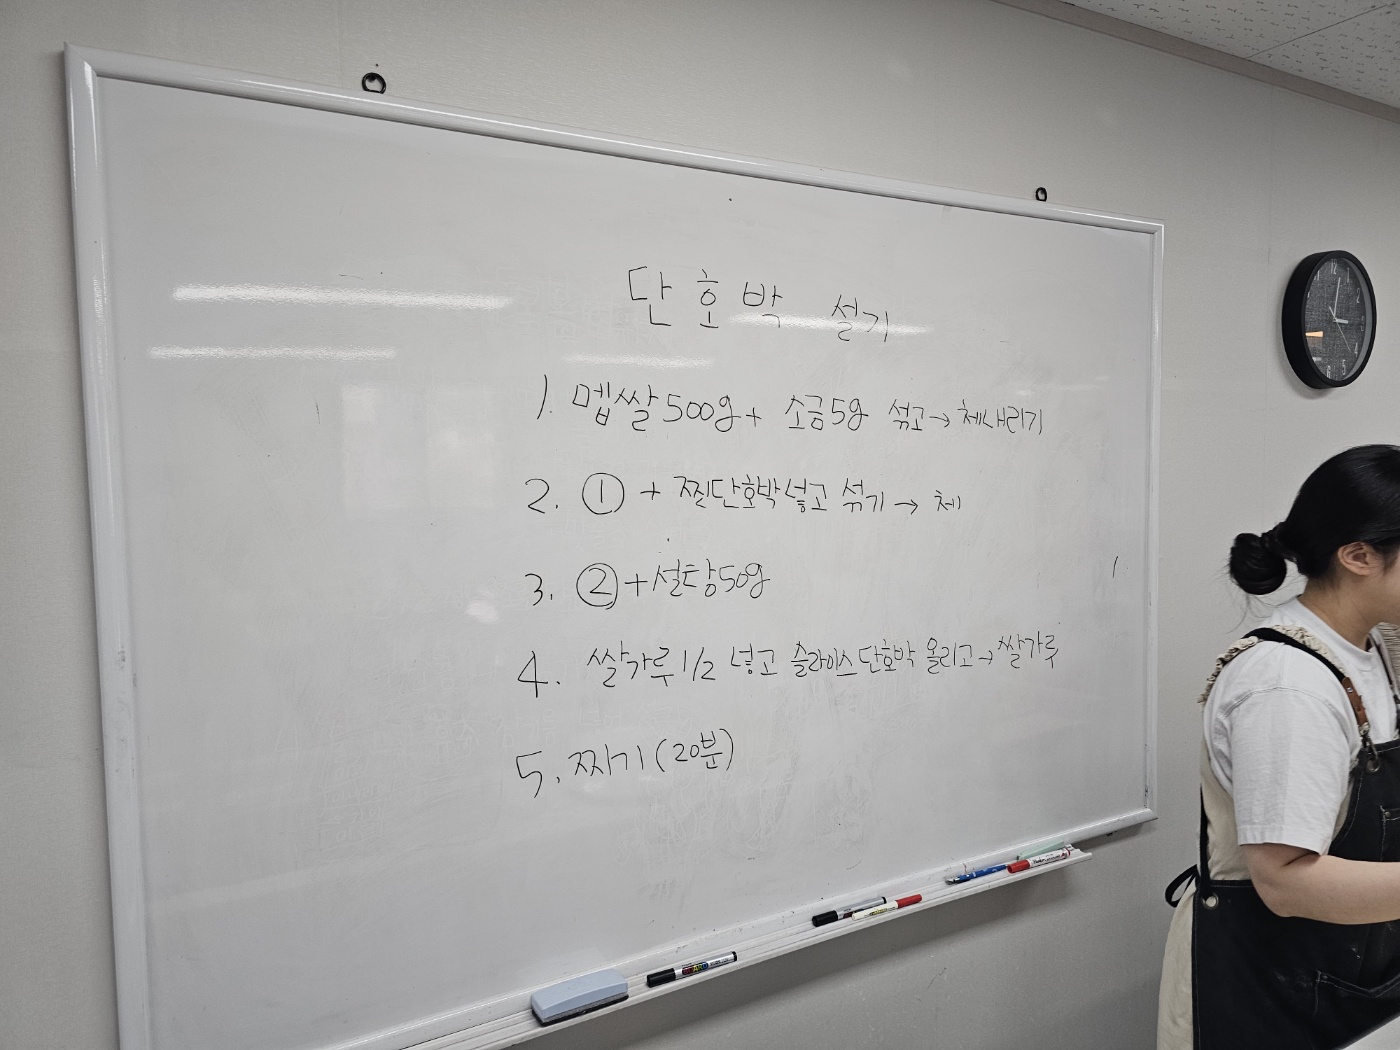 단호박 설기
1. 멥쌀500g+ 소금5g 섞고→체내리기
2. ① + 찐단호박넣고 섞기→ 체
3. ②+설탕50g
4. 쌀가루 1/2 넣고 슬라이스 단호박 올리고→쌀가루
5. 찌기(20분)